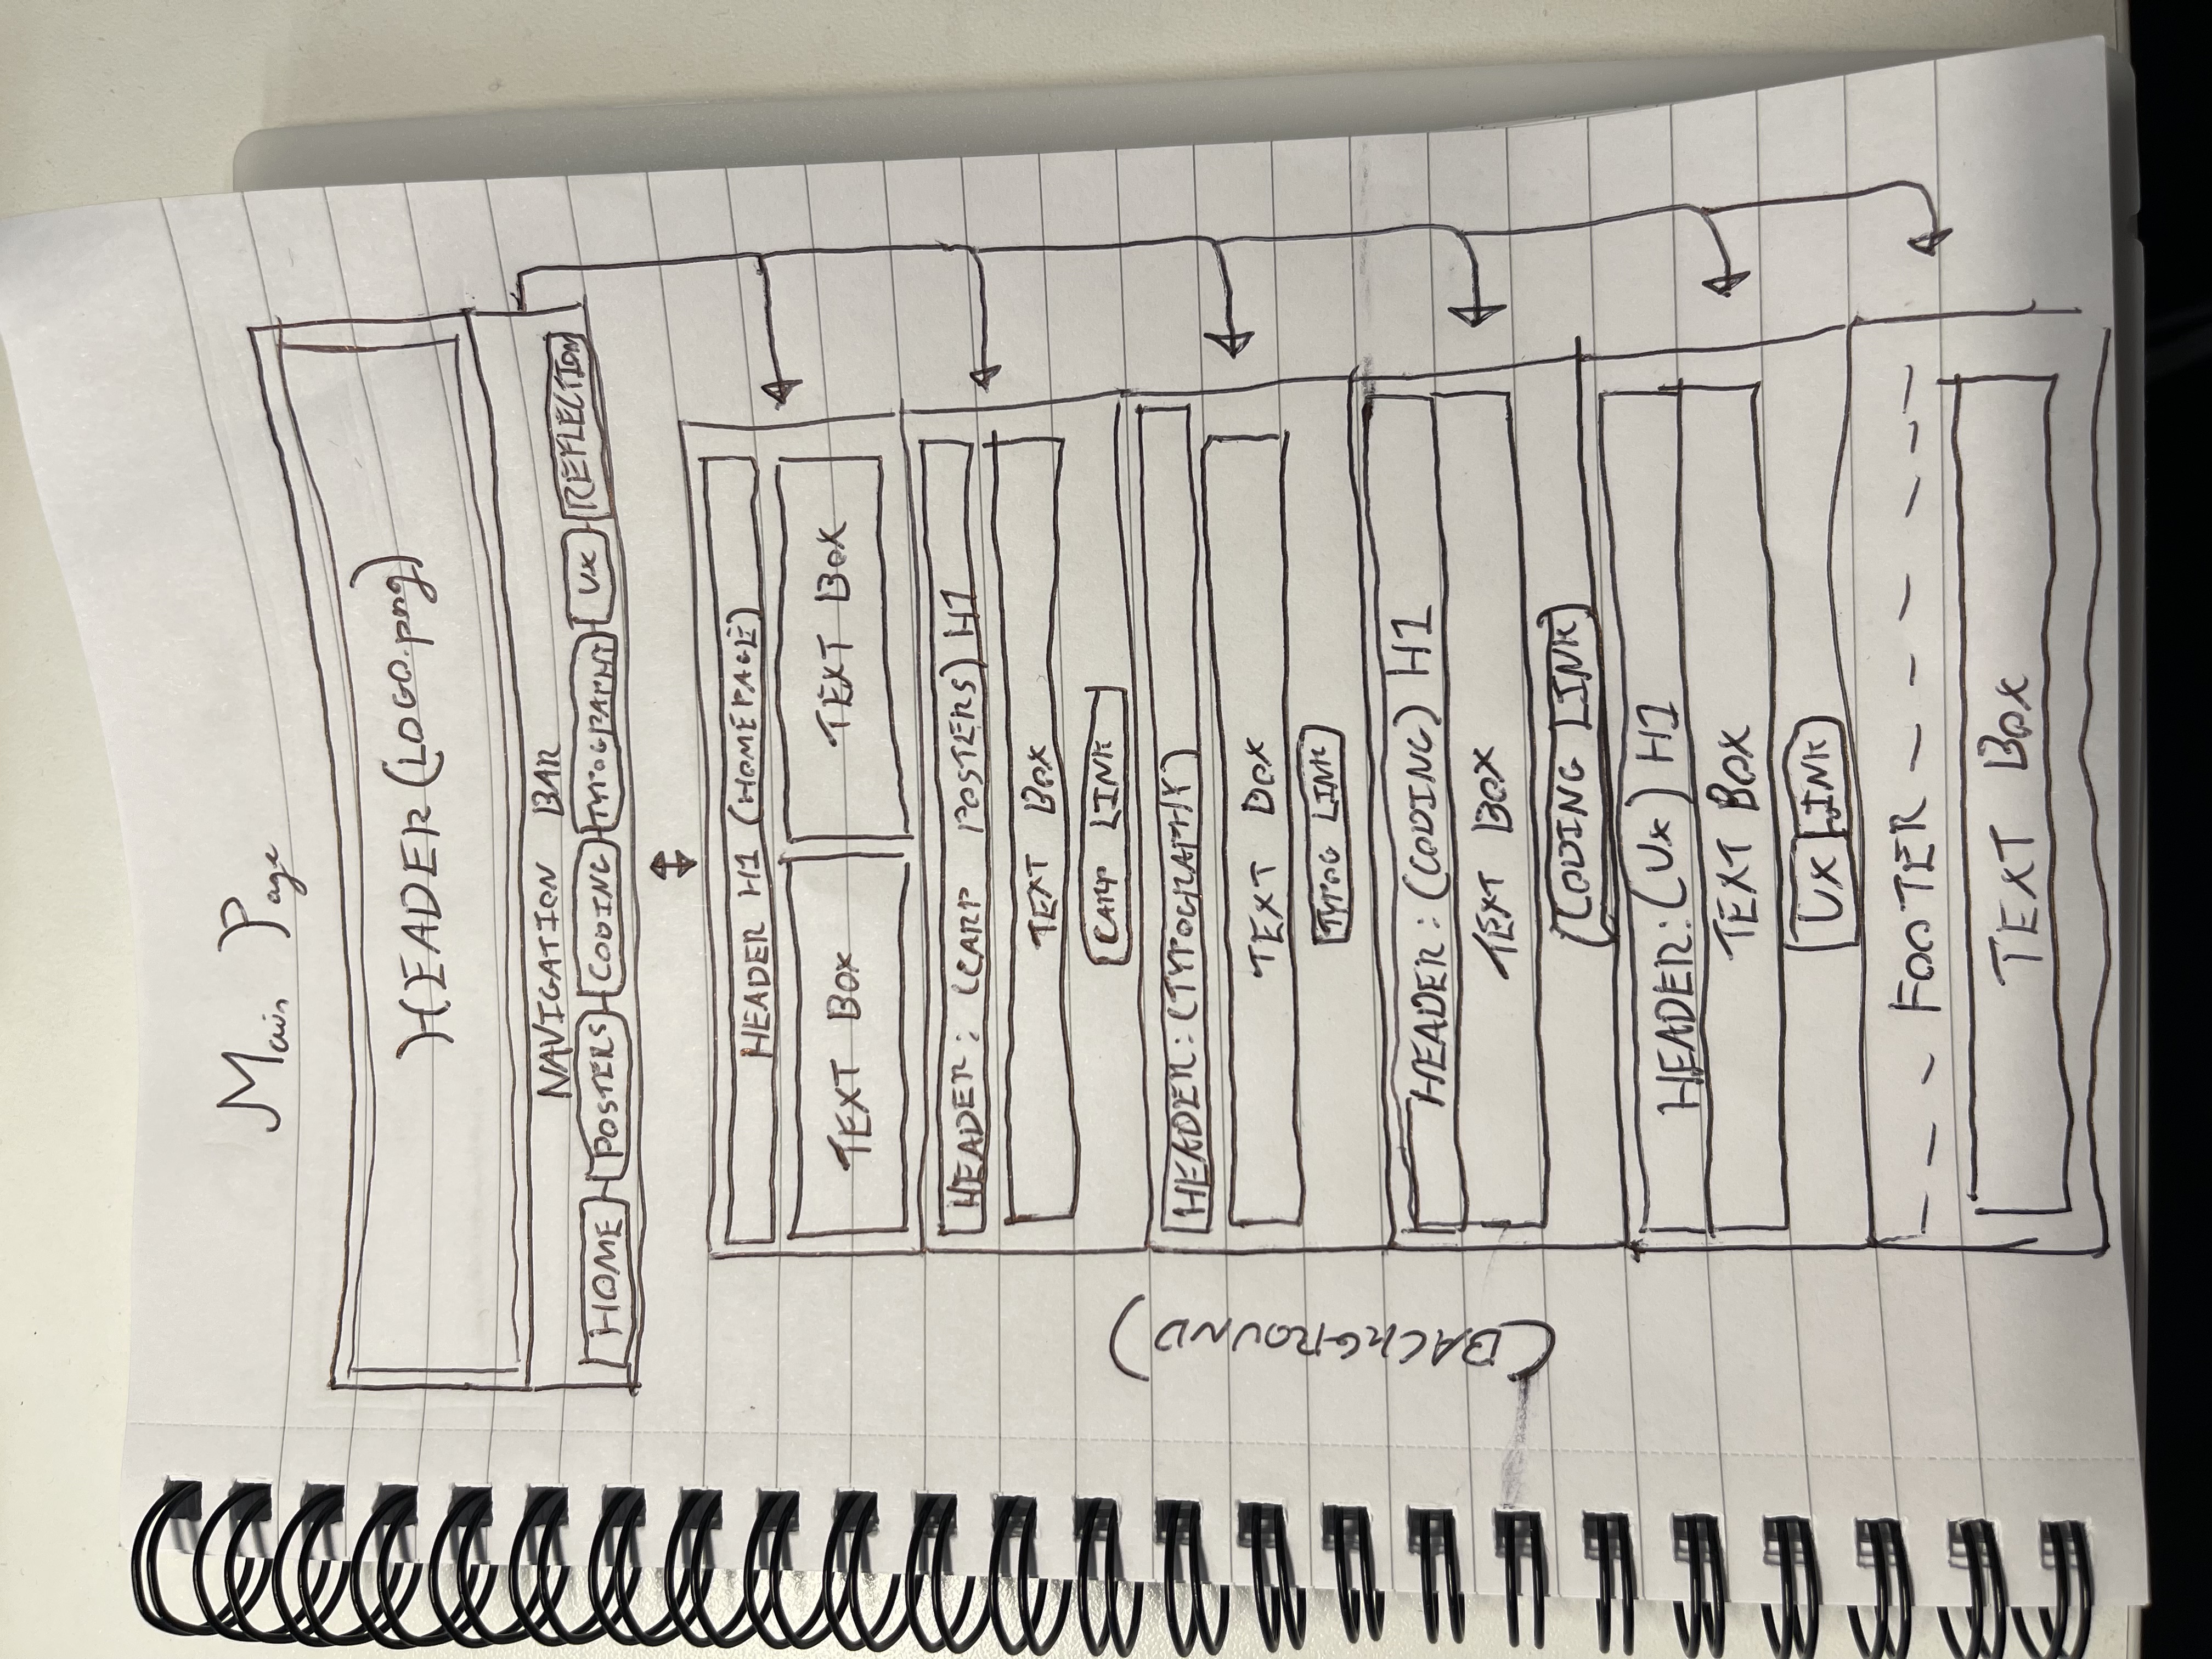 Main Page
HEADER (LOGO.png)
NAVIGATION BAR
HOME POSTERS CODING TYPOGRAPHY UX REFLECTION
HEADER H1 (HOMEPAGE)
TEXT BOX TEXT BOX
HEADER: (CARP POSTERS) H1
TEXT BOX
CARP LINK
HEADER: (TYPOGRAPHY)
TEXT BOX
TYPOG LINK
(BACKGROUND)
HEADER: (CODING) H1
TEXT BOX
CODING LINK
HEADER: (Ux) H1
TEXT BOX
Ux LINK
FOOTER
TEXT BOX